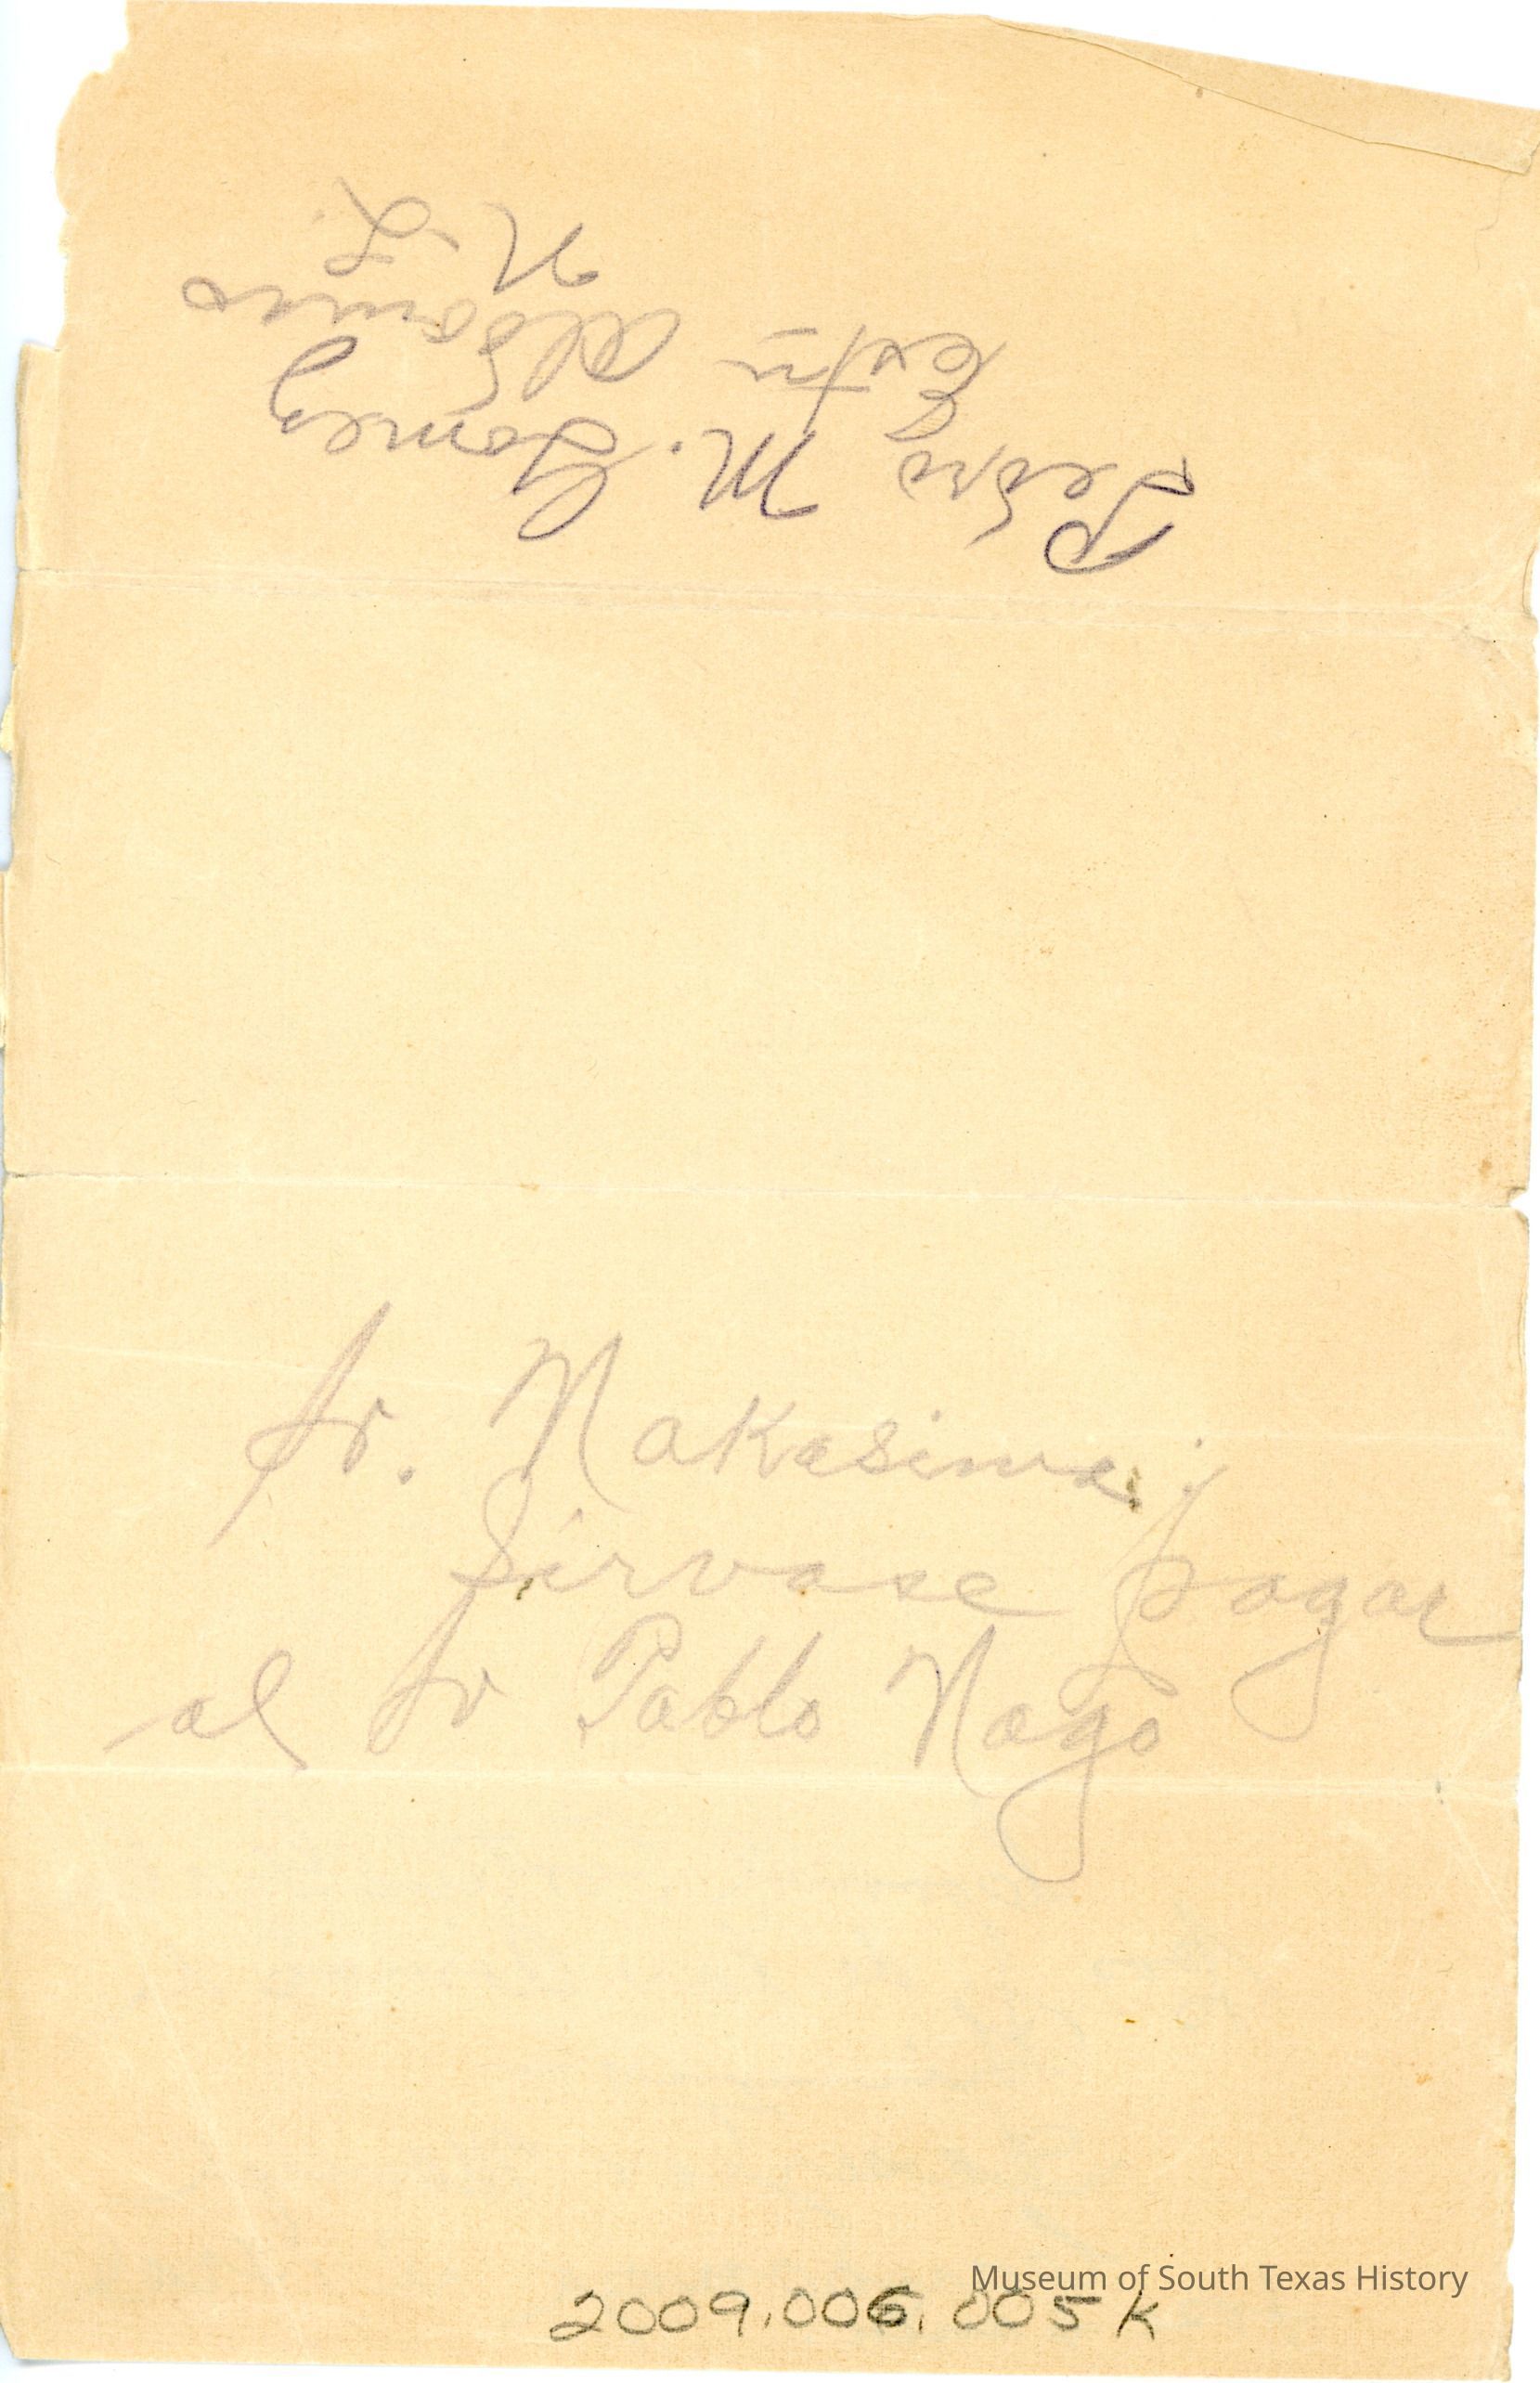 Pedro M. Gomez
Aldamas
N. L.
Sr. Nakasima;
Sirvase pagar
al Sr Pablo Nago
Museum of South Texas History
2009.006.005K